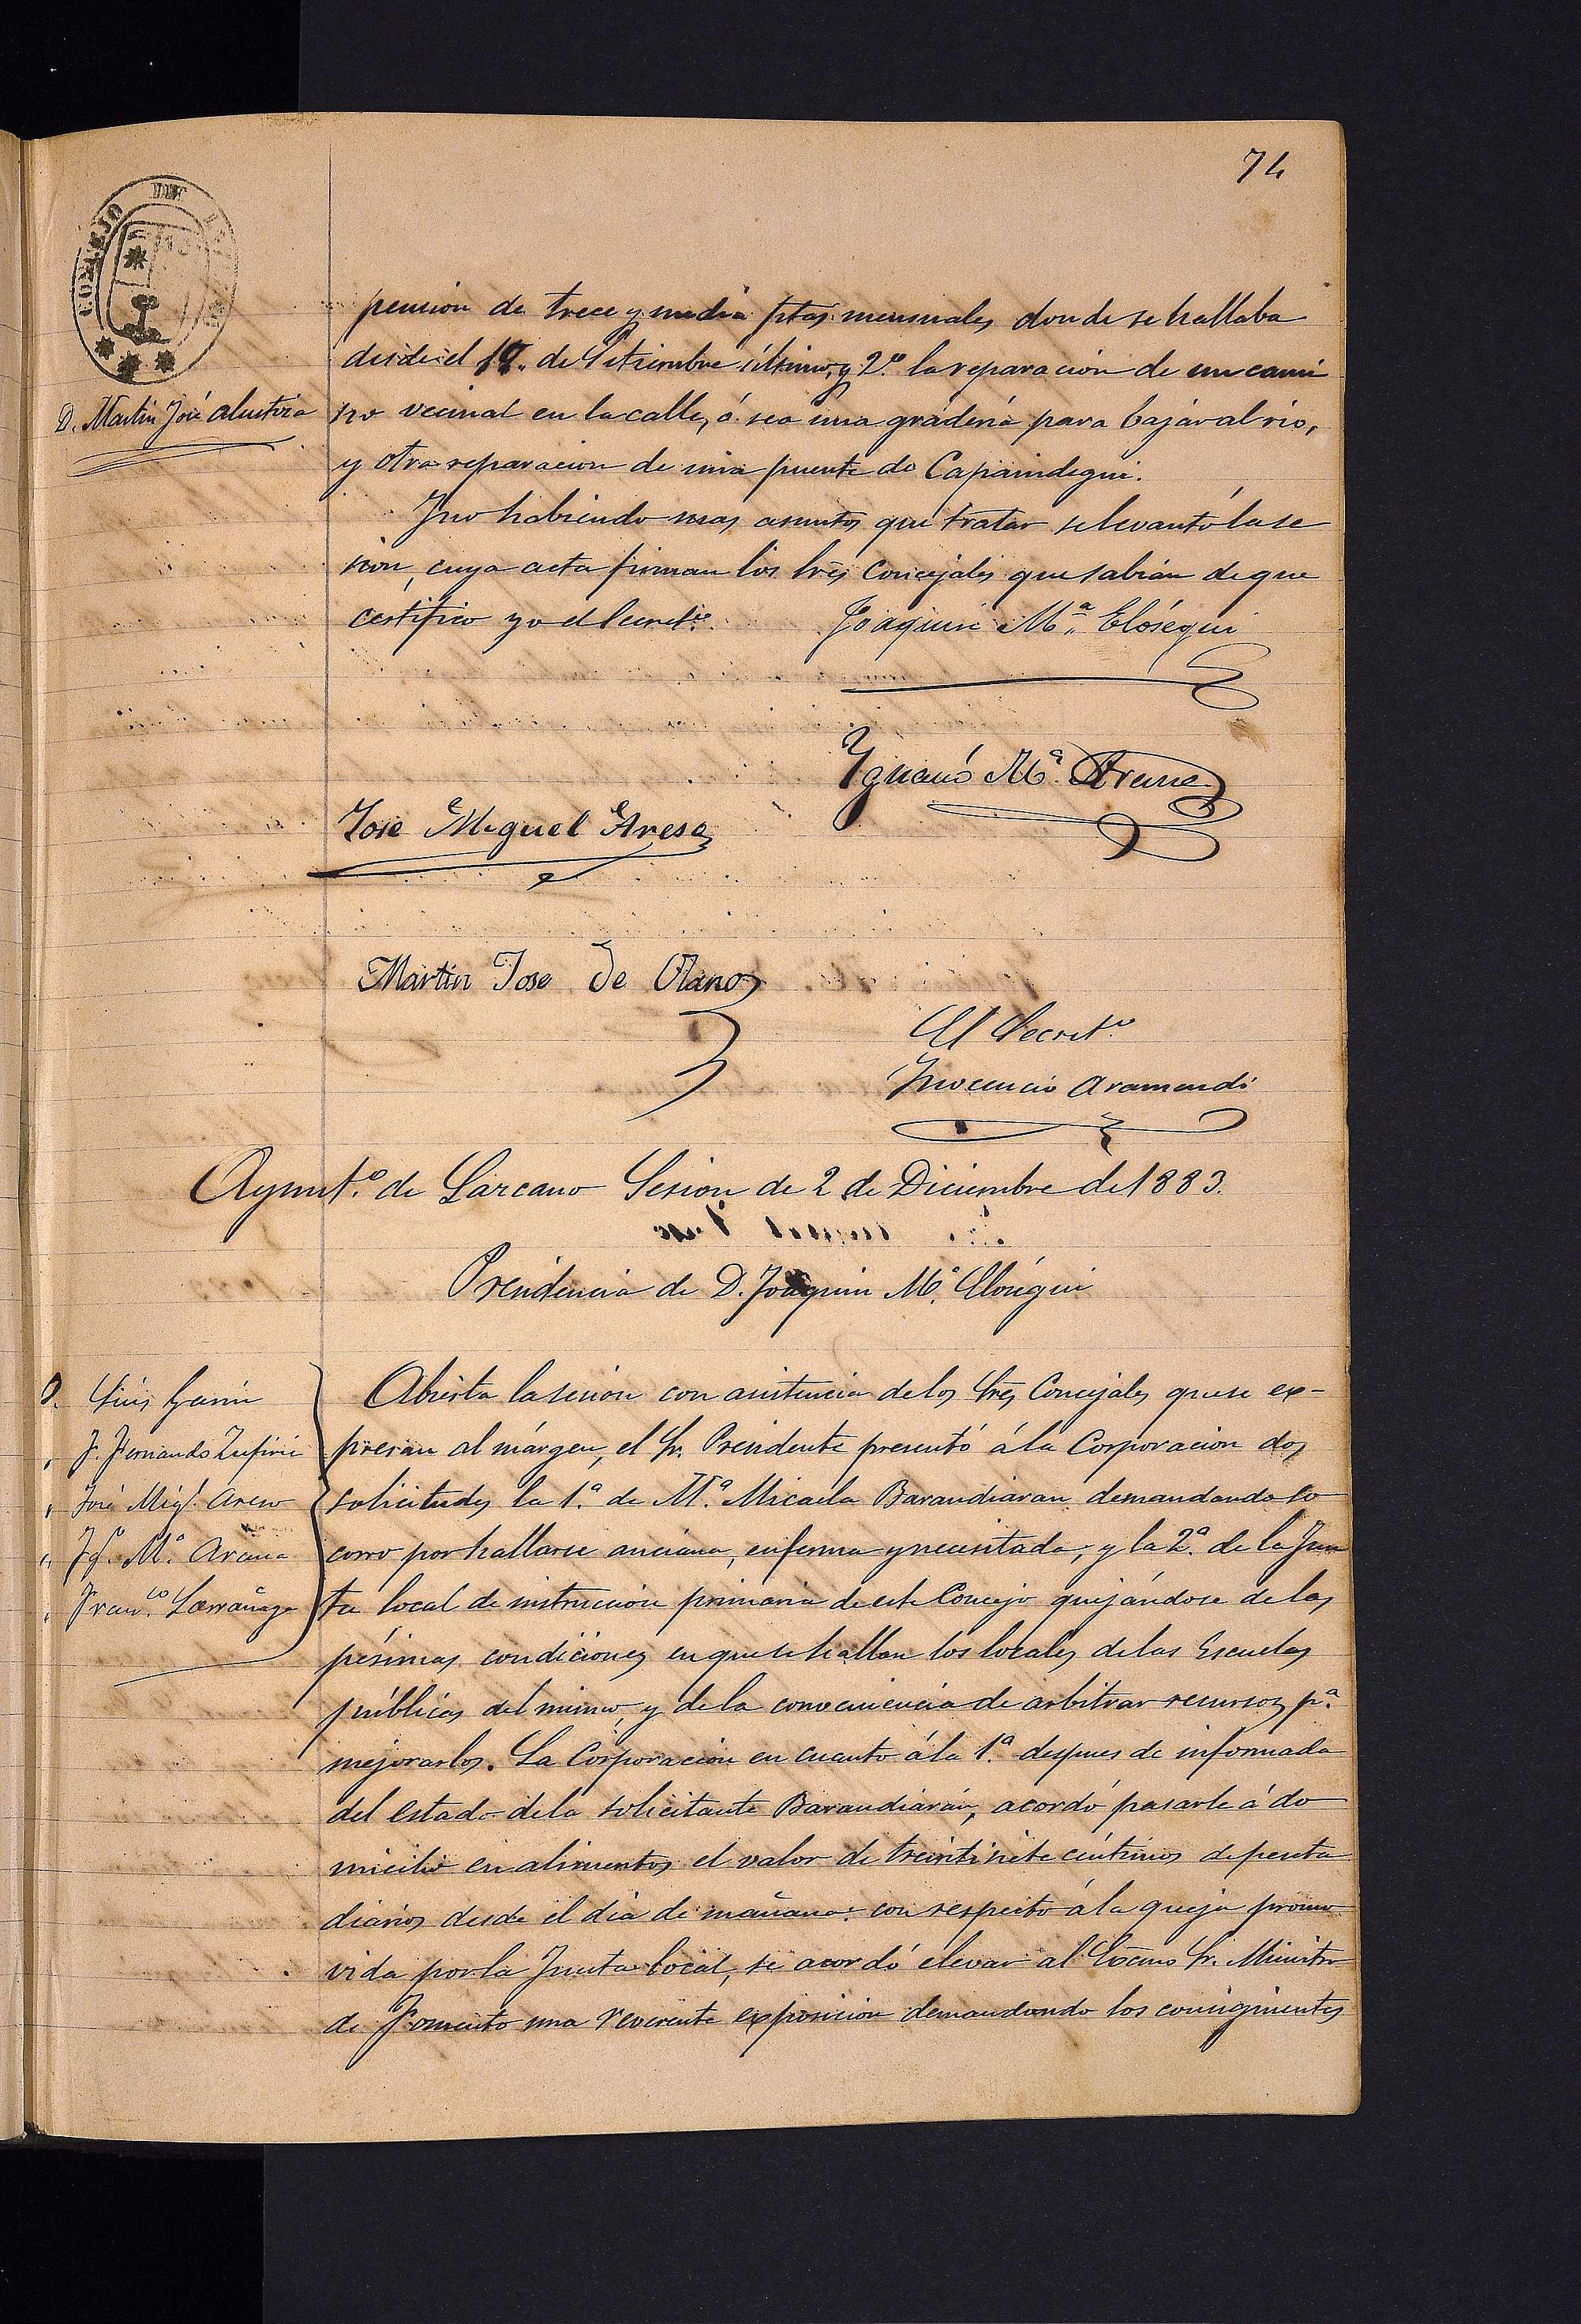 74
CONCEJO DE
pension de trece y media ptas. mensuales donde se hallaba
desde el 18. de Setiembre último, y 2º. la reparacion de un cami
D. Martin José Alustiza
no vecinal en la calle, ó sea una gradería para bajar al rio,
y otra reparacion de una puente de Capaindegui.
Y no habiendo mas asuntos que tratar se levantó la se
sion, cuya acta firman los Sres Concejales que sabian de que
certifico yo el Secretº.
Joaquin Mª. Elósegui
Ignacio Mª. Arana
José Miguel Areso
Martin Jose de Olano
El Secretº
Inocencio Aramendi
Ayuntº. de Lazcano Sesion de 2 de Diciembre de 1883.
Presidencia de D. Joaquin Mª. Elosegui
D. Luis Garin
" J. Fernando Zufiria
" José Migl. Areso
" Igº. Mª. Arana
" Francº. Larrañaga
Abierta la sesion con asistencia de los Sres Concejales que se ex-
presan al márgen, el Sr. Presidente presentó á la Corporacion dos
solicitudes la 1.ª de M.ª Micaela Barandiaran demandando so
corro por hallarse anciana, enferma y necesitada, y la 2ª. de la Jun
ta local de instruccion primaria de este Concejo quejándose de las
pésimas condiciones en que se hallan los locales de las Escuelas
públicas del mismo, y de la conveniencia de arbitrar recursos pª.
mejorarlos. La Corporacion en cuanto á la 1.ª despues de informada
del estado de la solicitante Barandiarán, acordó pasarle á do
micilio en alimentos el valor de treintisiete céntimos de peseta
diarios desde el dia de mañana: con respecto á la queja promo
vida por la Junta local, se acordó elevar al Excmo Sr. Ministro
de Fomento una reverente exposicion demandando los consiguientes